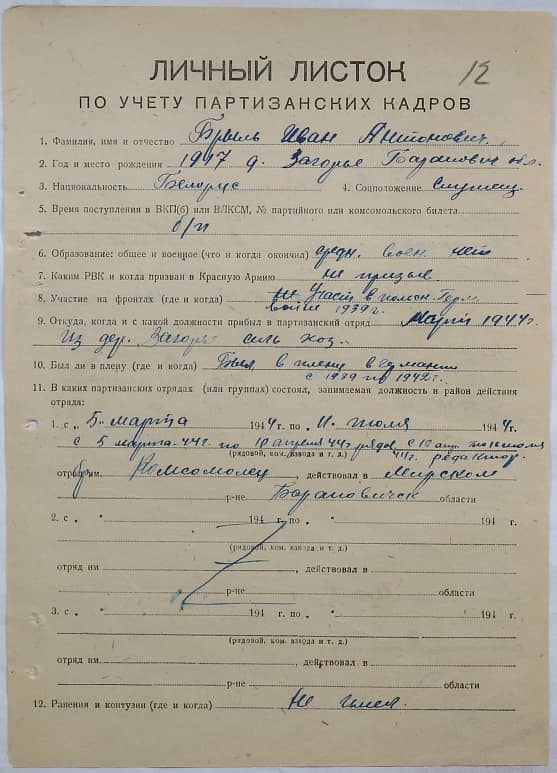 ЛИЧНЫЙ ЛИСТОК
12
ПО УЧЕТУ ПАРТИЗАНСКИХ КАДРОВ
1. Фамилия, имя и отчество Брыль Иван Антонович.
2. Год и место рождения 1917 д. Загорье Баранович обл.
3. Национальность Белорус 4. Соцположение Служащ.
5. Время поступления в ВКП(б) или ВЛКСМ, № партийного или комсомольского билета
б/п
6. Образование: общее и военное (что и когда окончил) средн. воен. нет
7. Каким РВК и когда призван в Красную Армию не призыв
8. Участие на фронтах (где и когда) не участ в польск. Герм.
войне 1939 г.
9. Откуда, когда и с какой должности прибыл в партизанский отряд Март 1944 г.
Из дер. Загорье сель хоз.
10. Был ли в плену (где и когда) Был в плену в Германии
с 1939 по 1942 г.
11. В каких партизанских отрядах (или группах) состоял, занимаемая должность и район действия
отряда:
1. с „ 5 - марта 1944 г. по 11 - июля 1944 г.
с 5 марта - 44 г. по 10 апреля 44 г рядов. с 10 апр. по июля
(рядовой, ком. взвода и т. д.) 44 г. редактор
отряд им. Комсомолец, действовал в Мирском
р-не Барановичск области
2. с „ " 194 г. по " 194 г.
(рядовой, ком. взвода и т. д.)
отряд им , действовал в
р-не области
3. с „ " 194 г. по " 194 г.
(рядовой, ком. взвода и т. д.)
отряд им. , действовал в
р-не области
12. Ранения и контузии (где и когда) Не имел.